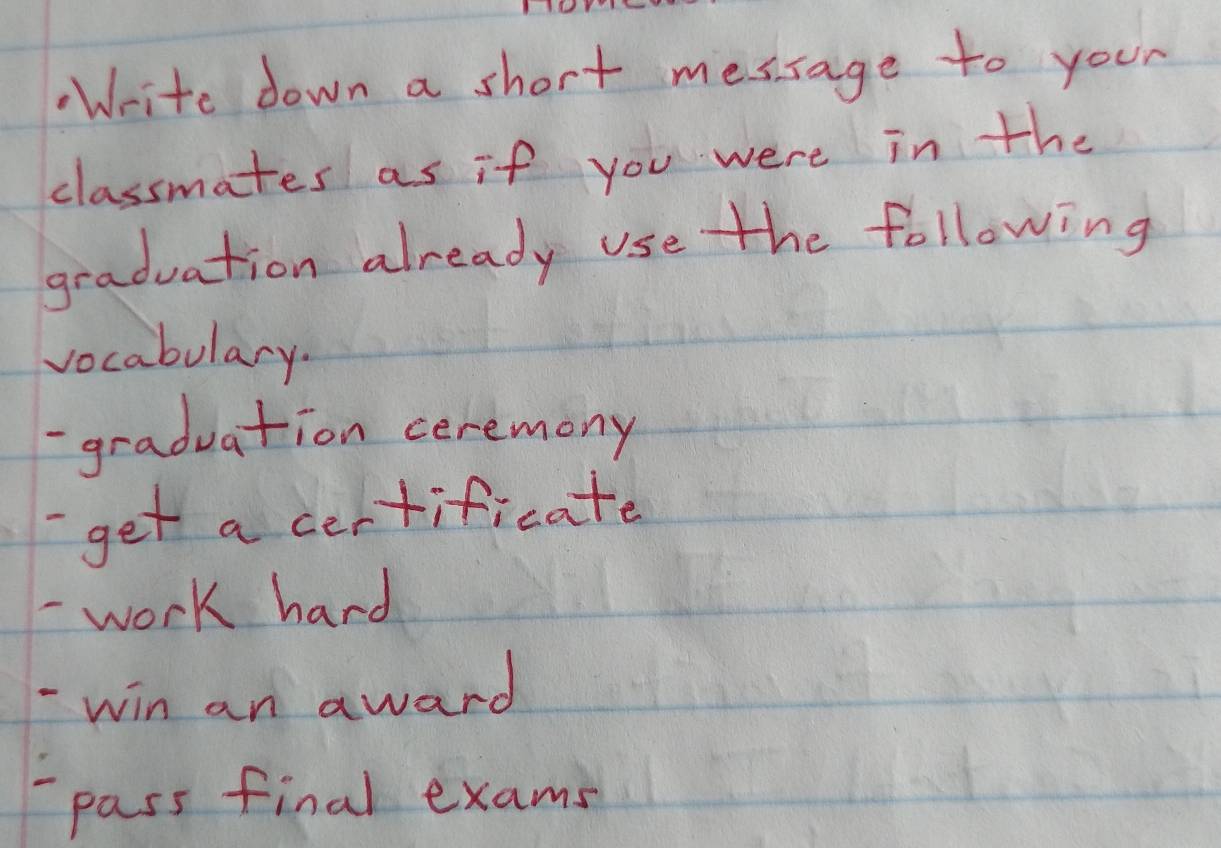 •Write down a short message to your
classmates as if you were in the
graduation already use the following
vocabulary.
- graduation ceremony
- get a certificate
- work hard
- win an award
- pass final exams